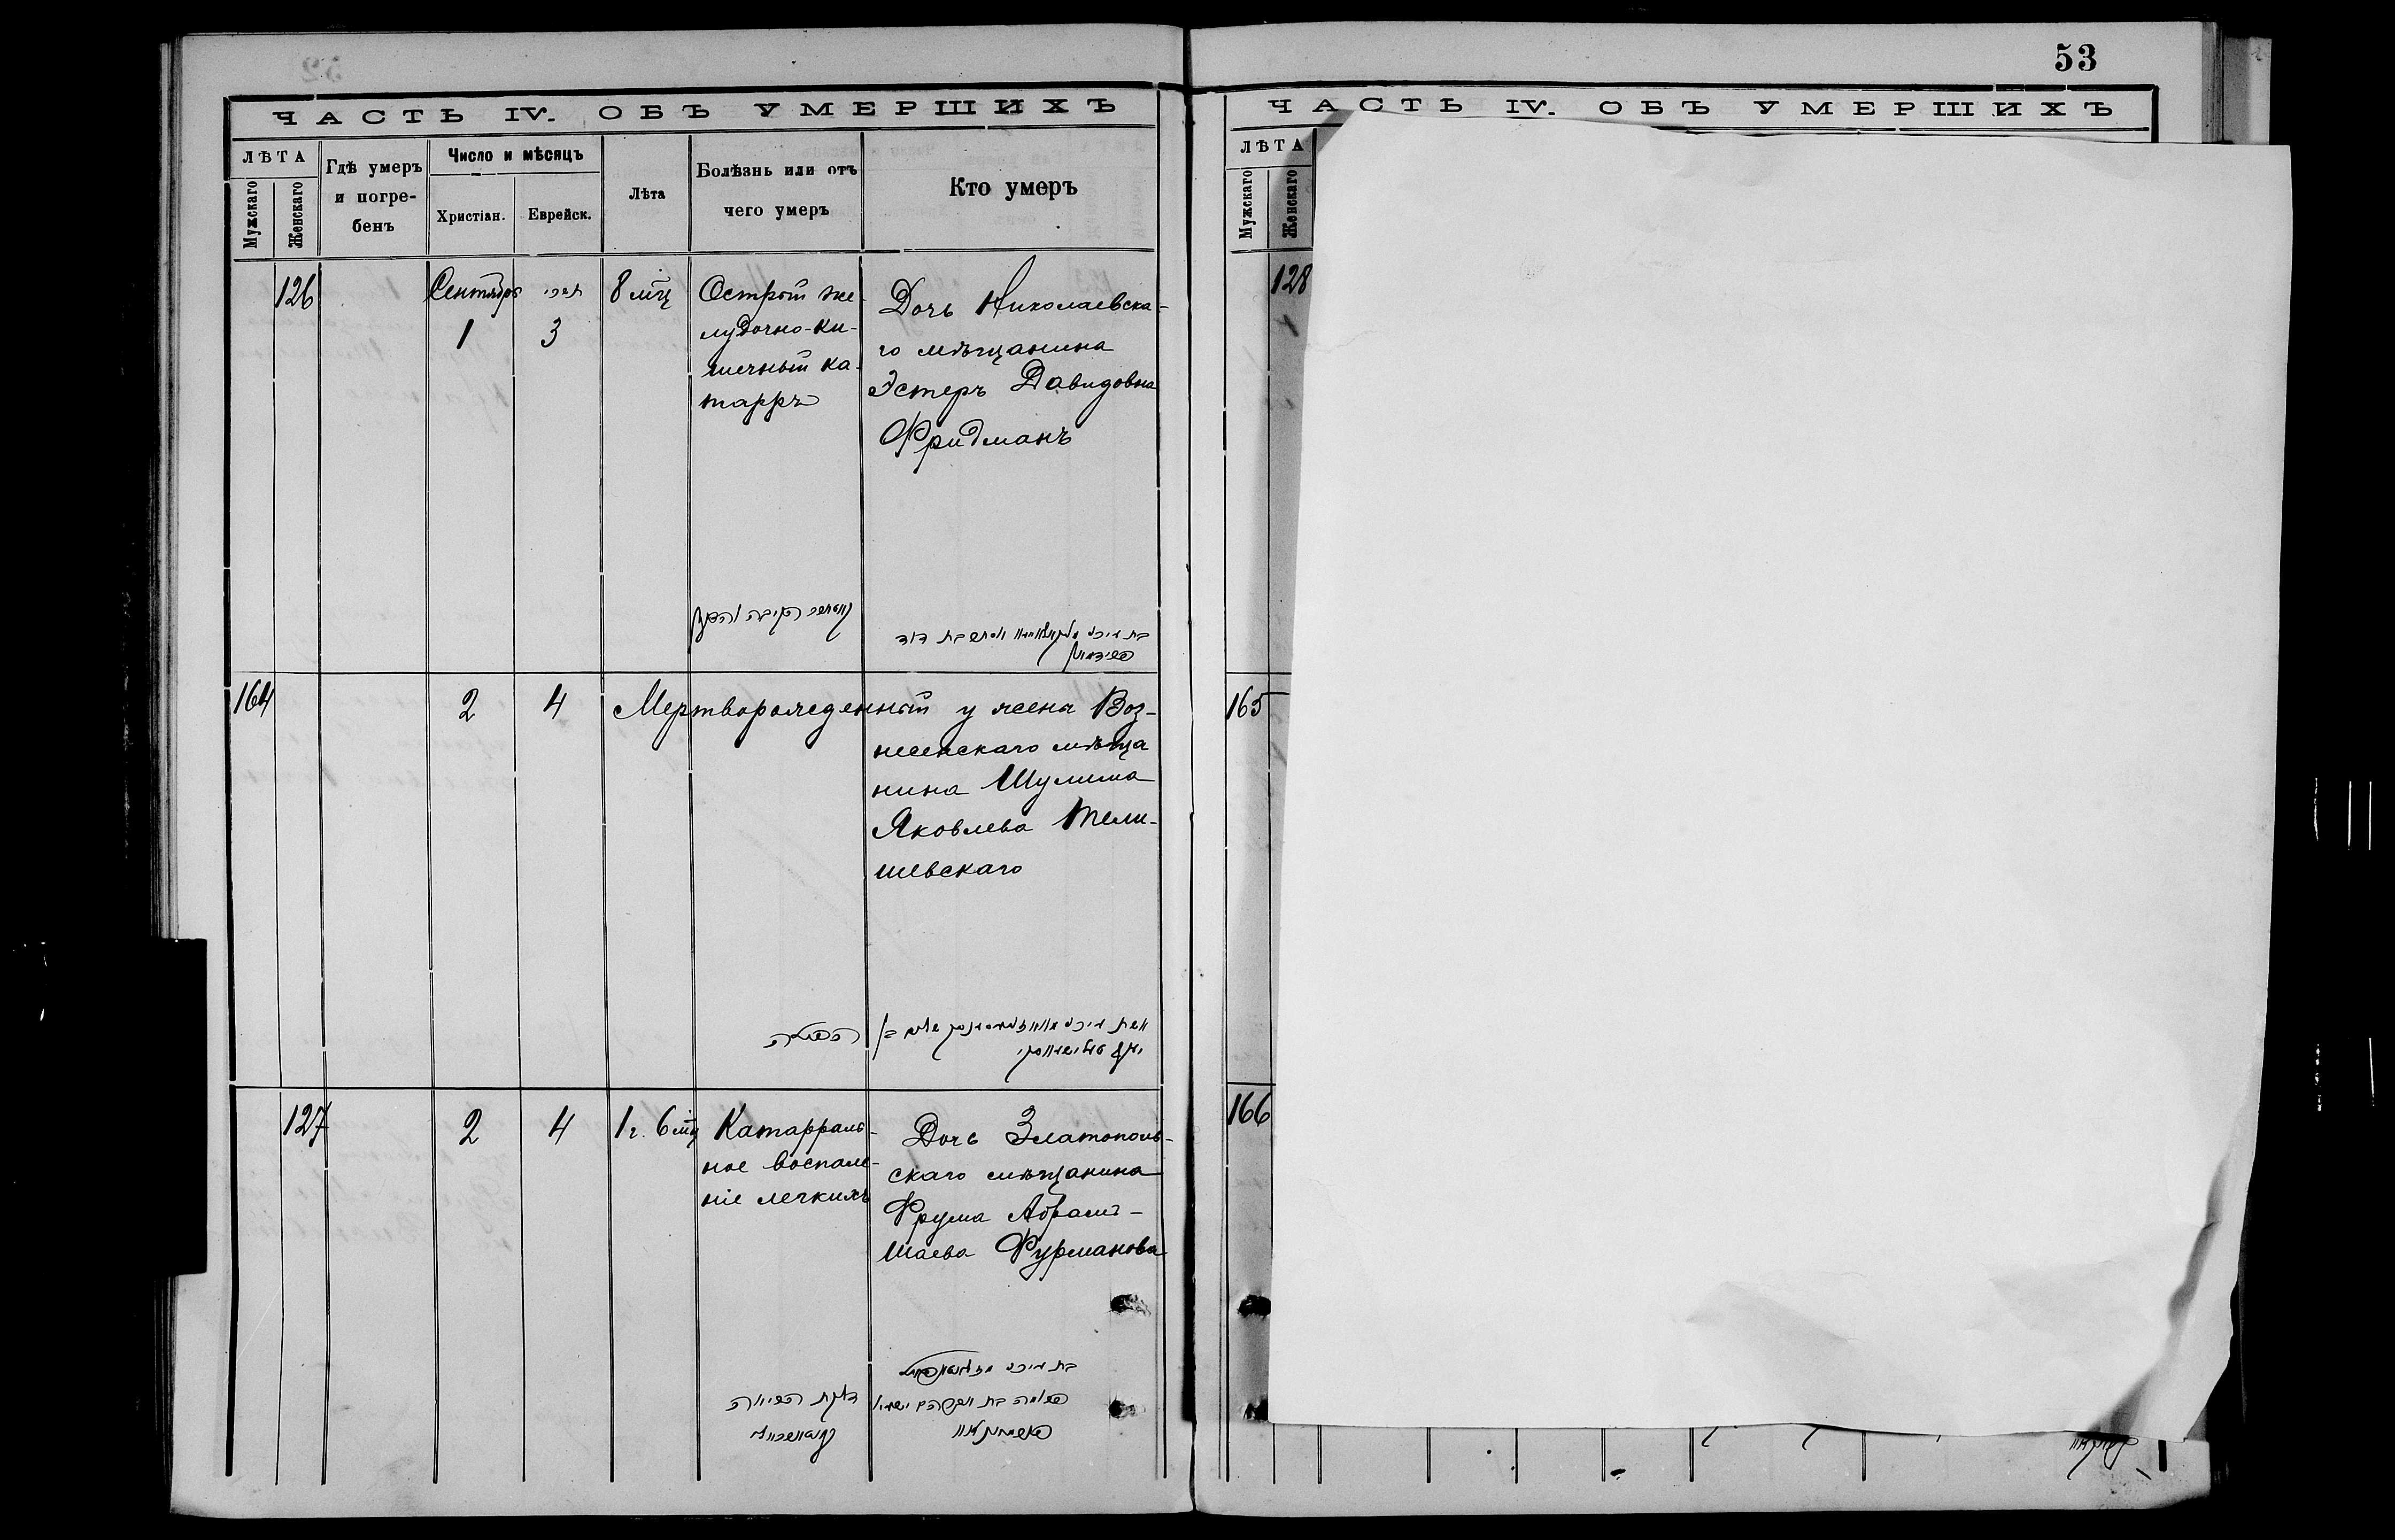 53
ЧАСТЬ IV. ОБЪ УМЕРШИХЪ
ЛѢТА
Мужскаго
Женскаго
Гдѣ умеръ
и погре-
бенъ
Число и мѣсяцъ
Христіан.
Еврейск.
Лѣта
Болѣзнь или отъ
чего умеръ
Кто умеръ
126
Сентября
1
תשרי
3
8 мц
Острый же-
лудочно-ки-
шечный ка-
тарръ
Дочь Николаевска-
го мѣщанина
Эстеръ Давидовна
Фридманъ
164
2
4
Мертворожденный у жена Воз-
несенскаго мѣща
нина Шулима
Яковлева Тели-
шевскаго
127
2
4
1 г. 6 мц
Катарраль-
ное воспале-
ніе легкихъ
דלקת הריאה
Дочь Златополь-
скаго мѣщанина
Фрума Абрамъ-
Шаева Фурманова
ЧАСТЬ IV. ОБЪ УМЕРШИХЪ
ЛѢТА
Мужскаго
Женскаго
128
165
166